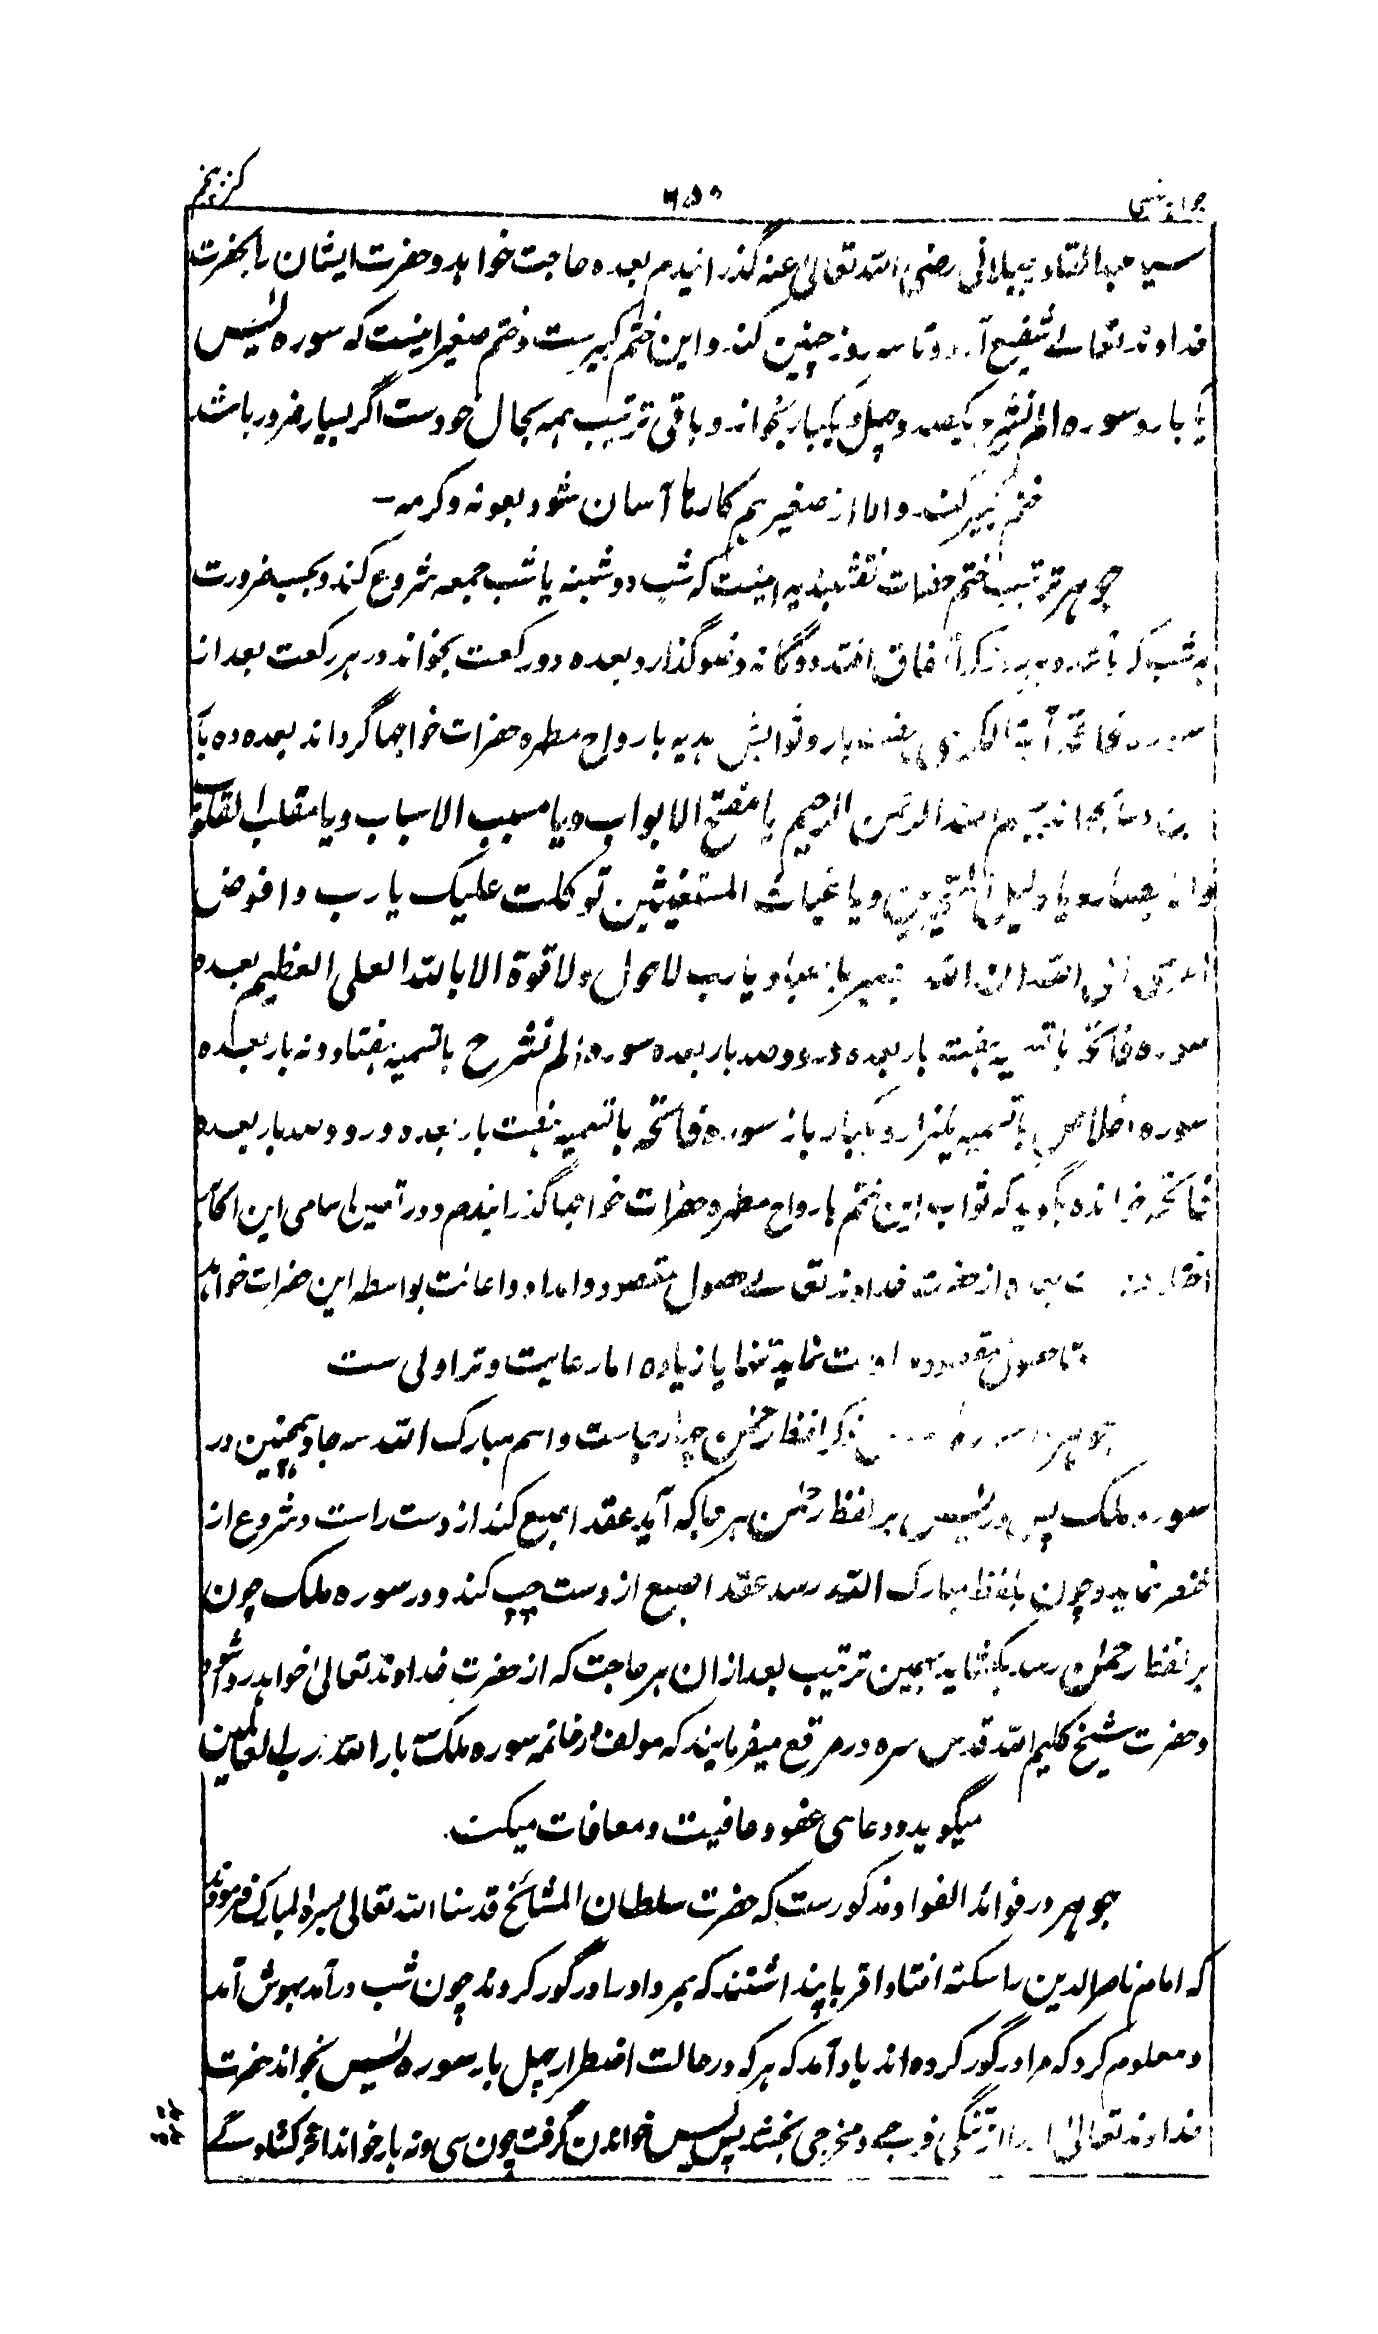 کنز پنجم
۶۵۰
جواهر خمسی
سید عبدالقادر جیلانی رضی الله تعالیٰ عنه گذرانیدم بعده حاجت خواهد و حضرت ایشان را بحضرت
خداوند تعالے شفیع آرد و تا سه روز چنین کند و این ختم کبیرست و ختم صغیر اینست که سوره یٰس
یکبار و سوره الم نشرح یکصد و چهل و یکبار بخواند و باقی ترتیب همه بحال خودست اگر بسیار ضرور باشد
ختم کبیر کند و الا از صغیر هم کارها آسان شود بعونه و کرمه –
جوهر ترتیب ختم حضرات نقشبندیه اینست که شب دوشنبه یا شب جمعه شروع کند و بحسب ضرورت
هر شب که باشد و هر روز که اتفاق افتد دوگانه وضو گذارد بعده دو رکعت بخواند در هر رکعت بعد از
سوره فاتحه آیة الکرسی هفت بار و ثوابش هدیه بارواح مطهره حضرات خواجها گرداند بعده ده بار
این دعا بخواند بسم الله الرحمن الرحیم یا مفتح الابواب و یا مسبب الاسباب و یا مقلب القلوب
والابصار و یا دلیل المتحیرین و یا غیاث المستغیثین توکلت علیک یا رب و افوض
امری الی الله ان الله بصیر بالعباد یا رب لا حول و لا قوة الا بالله العلی العظیم بعده
سوره فاتحه با تسمیه هفت بار بعده درود صد بار بعده سوره الم نشرح با تسمیه هفتاد و نه بار بعده
سوره اخلاص با تسمیه یکهزار و یکبار باز سوره فاتحه با تسمیه هفت بار بعده درود صد بار بعده
فاتحه خوانده بگوید که ثواب این ختم بارواح مطهره حضرات خواجها گذرانیدم و در تعین اسامی این اکابر
اختلاف ست بعده از حضرت خداوند تعالے حصول مقصود و امداد و اعانت بواسطه این حضرات خواهد
تا حصول مقصود مداومت نماید تنها یا زیاده اما رعایت وتر اولی ست
جوهر در سوره یٰس ذکر لفظ رحمٰن چهار جاست و اسم مبارک الله سه جا و همچنین در
سوره ملک پس در یٰس بر لفظ رحمٰن هر جا که آید عقد اصبع کند از دست راست و شروع از
خنصر نماید و چون بلفظ مبارک الله رسد عقد اصبع از دست چپ کند و در سوره ملک چون
بر لفظ رحمٰن رسد بکشاید بهمین ترتیب بعد از ان هر حاجت که از حضرت خداوند تعالیٰ خواهد روا شود
و حضرت شیخ کلیم الله قدس سره در مرقع میفرمایند که مولف در خاتمه سوره ملک سه بار الله رب العالمین
میگوید و دعای عفو و عافیت و معافات میکند.
جوهر در فوائد الفواد مذکورست که حضرت سلطان المشائخ قدسنا الله تعالیٰ بسره المبارک فرمودند
که امام ناصر الدین را سکته افتاد اقربا پنداشتند که بمرد او را در گور کردند چون شب درآمد بهوش آمد
و معلوم کرد که مرا در گور کرده اند یاد آمد که هر که در حالت اضطرار چهل بار سوره یٰس بخواند حضرت
خداوند تعالیٰ او را از تنگی فرجے و مخرجی بخشد پس یٰس خواندن گرفت چون سی و نه بار خواند اثر کشادگے